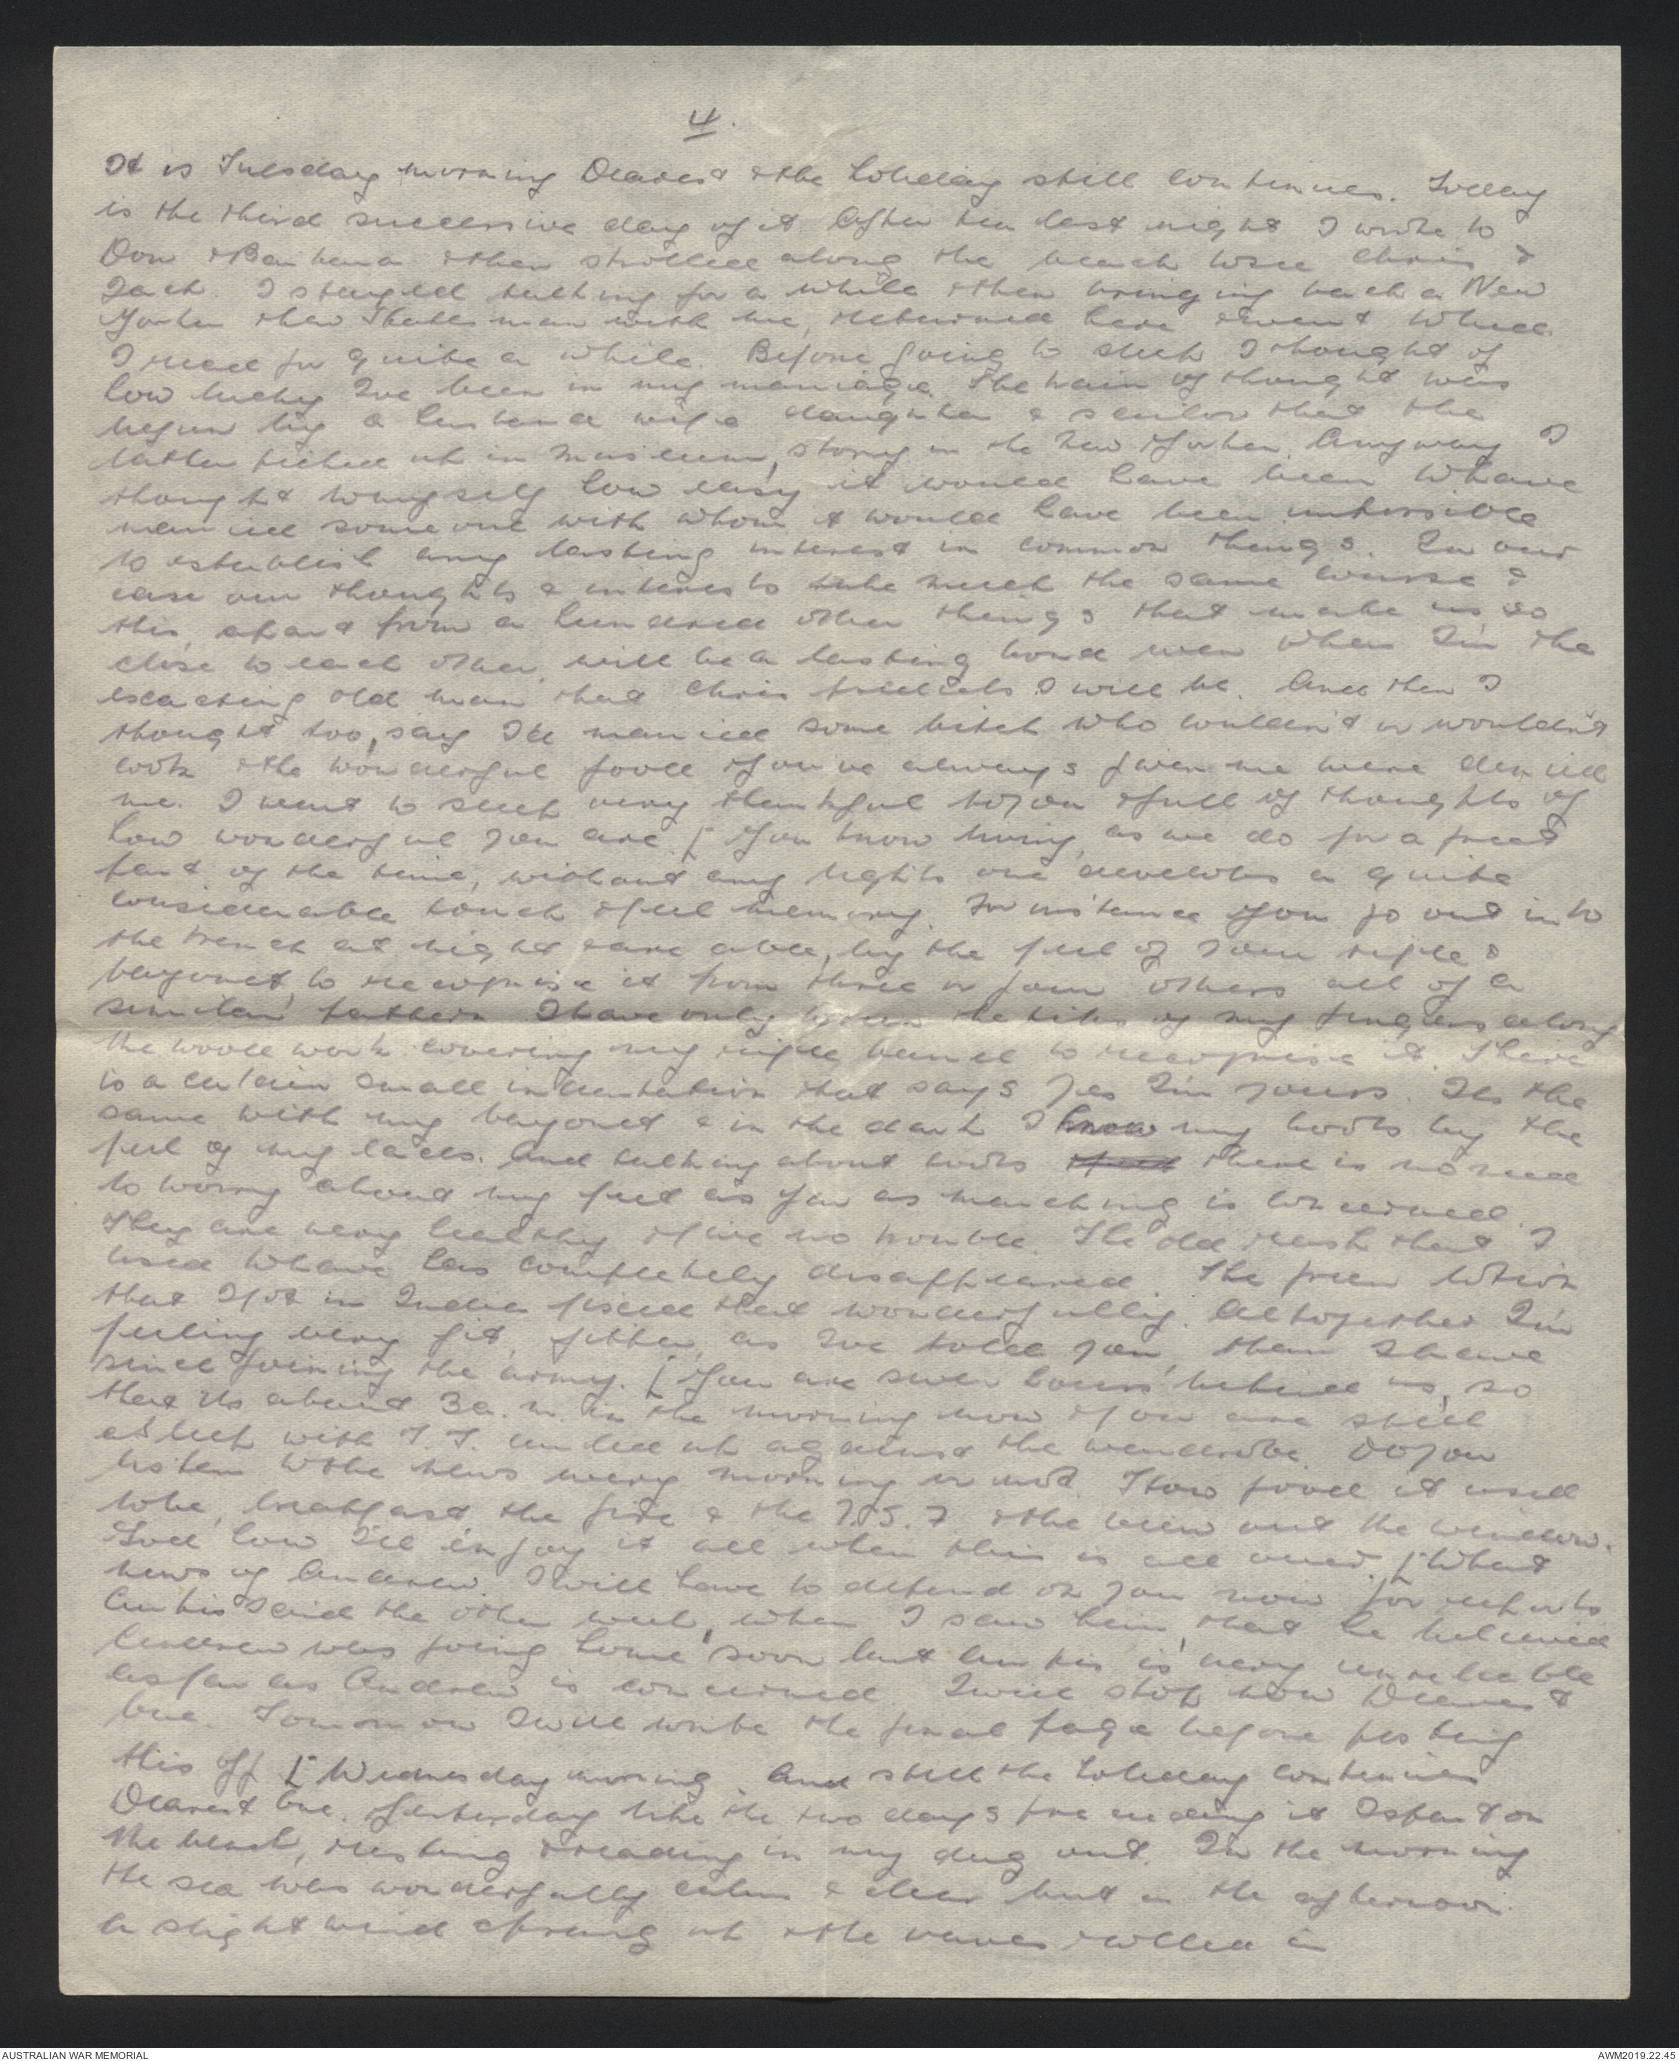 4.
It is Tuesday morning Dearest & the holiday still continues. Today
is the third successive day of it. After tea last night I wrote to
Don & Barbara & then strolled along the beach to see Chris &
Jack. I stayed talking for a while & then bringing back a New
Yorker & New Statesman with me, returned here & went to bed.
I read for quite a while. Before going to sleep I thought of
how lucky I've been in my marriage. The train of thought was
begun by a husband wife daughter & sailor that the
latter picked up in museum, story in the New Yorker. Anyway I
thought to myself how easy it would have been to have
married someone with whom it would have been impossible
to establish any lasting interest in common things. In our
case our thoughts & interests take much the same course &
this, apart from a hundred other things that make us so
close to each other, will be a lasting bond even when I'm the
exacting old man that Chris predicts I will be. And then I
thought too, say I'd married some bitch who couldn't or wouldn't
cook & the wonderful food you've always given me were denied
me. I went to sleep very thankful to you & full of thoughts of
how wonderful you are. [ You know living, as we do for a great
part of the time, without any lights one develops a quite
considerable touch & feel memory. For instance you go out into
the trench at night & are able, by the feel of your rifle &
bayonet, to recognise it from three or four others all of a
similar pattern. I have only to run the tips of my fingers along
the wood work covering my rifle barrel to recognise it. There
is a certain small indentation that says yes I'm yours. It's the
same with my bayonet & in the dark I know my boots by the
feel of my laces. And talking about boots there is no need
to worry about my feet as far as marching is concerned.
They are very healthy & give no trouble. The old rash that I
used to have has completely disappeared. The green lotion
that I got in India fixed that wonderfully. Altogether I'm
feeling very fit, fitter, as I've told you, than I have
since joining the army. [ You are seven hours behind us, so
that it's about 3 a.m. in the morning now & you are still
asleep with T.T. curled up against the wardrobe. Do you
listen to the news every morning or not. How good it used
to be, breakfast the fire & the & the view out the window.
God how I'll enjoy it all when this is all over. [ What
news of Andrew. I will have to depend on you now for reports
said the other week, when I saw him, that he believed
Andrew was going home soon but is very unreliable
as far as Andrew is concerned. I will stop now Dearest
One. Tomorrow I will write the final page before posting
this off [ Wednesday morning. And still the holiday continues
Dearest One. Yesterday like the two days preceding it I spent on
the beach, resting & reading in my dug out. In the morning
the sea was wonderfully calm & clear but in the afternoon
a slight wind sprang up & the waves rolled in
AUSTRALIAN WAR MEMORIAL
AWM2019.22.45